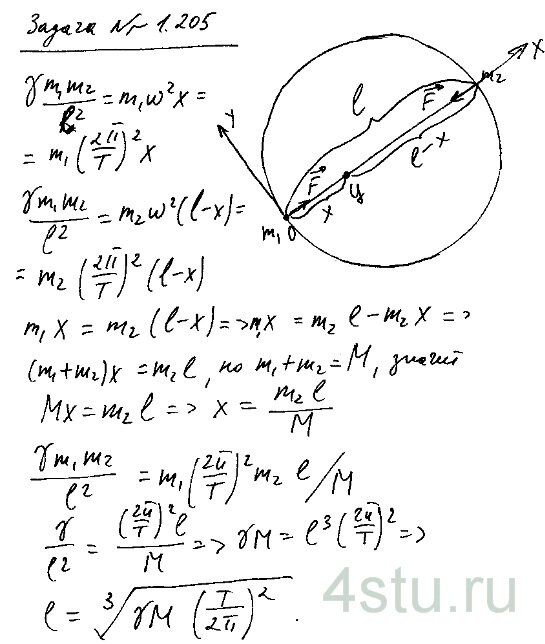 Задача № 1.205
γ m₁m₂/l² = m₁ω²x =
= m₁(2π/T)²x
γ m₁m₂/l² = m₂ω²(l-x) =
= m₂(2π/T)²(l-x)
m₁x = m₂(l-x) => m₁x = m₂l - m₂x =>
(m₁+m₂)x = m₂l, но m₁+m₂ = M, значит
Mx = m₂l => x = m₂l/M
γm₁m₂/l² = m₁(2π/T)²m₂ l/M
γ/l² = (2π/T)²l/M => γM = l³(2π/T)² =>
l = ³√(γM (T/2π)²).
Y
X
m₂
F
l
l-x
F
x
Ц
m₁ O
4stu.ru